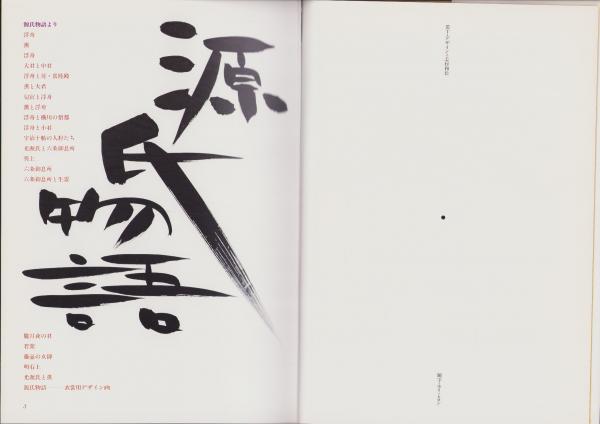 源氏物語
源氏物語より
浮舟
薫
浮舟
大君と中君
浮舟と薫
薫と大君
匂宮と浮舟
薫と浮舟
浮舟と横川の僧都
浮舟と小君
宇治十帖の人形たち
光源氏と六条御息所
葵上
六条御息所
六条御息所と生霊
朧月夜の君
若紫
藤壺の女御
明石上
光源氏と薫
源氏物語――衣裳用デザイン画
3